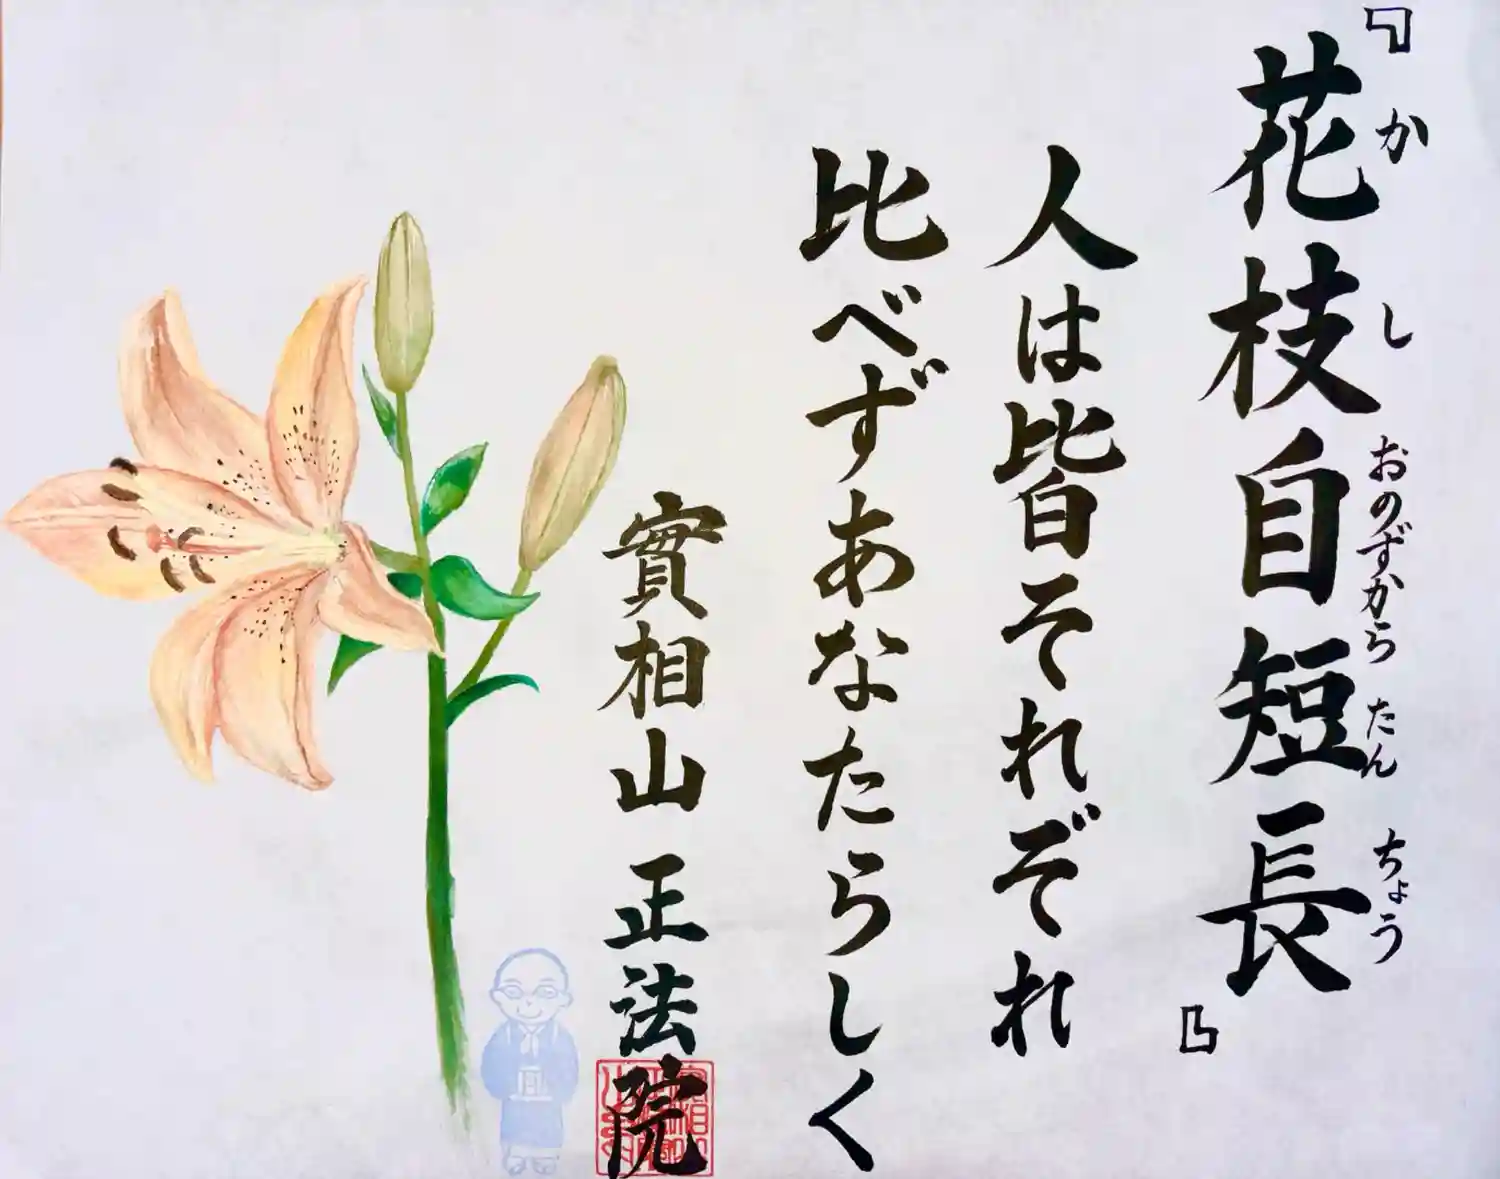 『花枝自短長』
かしおのずからたんちょう
人は皆それぞれ
比べずあなたらしく
實相山 正法院